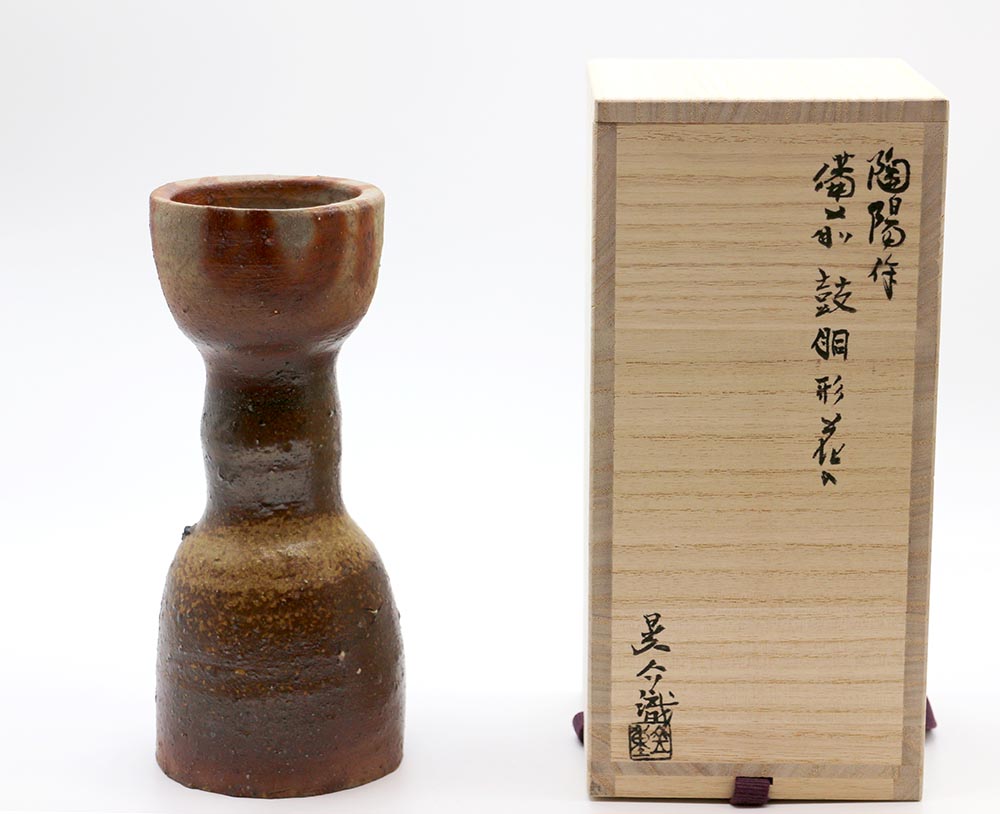 陶陽作
備前 鼓胴形花入
晃 今識